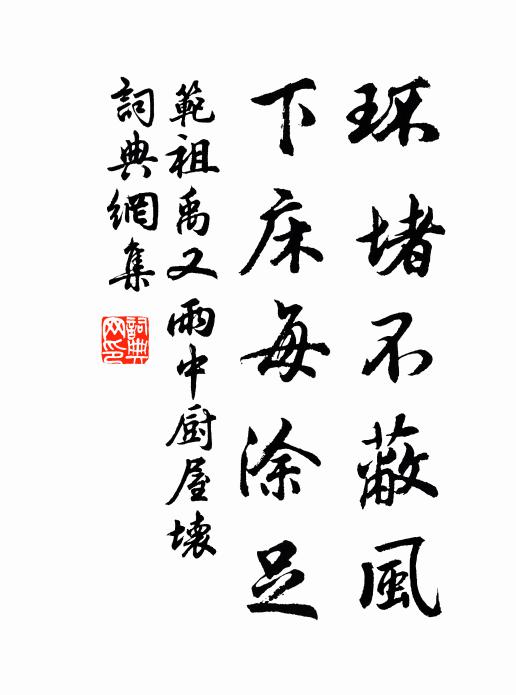 环堵不蔽風
下床每涂足
範祖禹又雨中厨屋壞
詞典網集
詞典網印